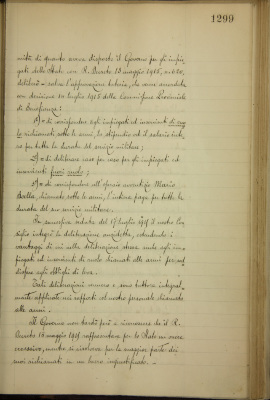 1299
mità di quanto aveva disposto il Governo per gli impie-
gati dello Stato con R. Decreto 13 maggio 1915, n. 620,
deliberò - salva l'approvazione tutoria, che venne accordata
con decisione 14 luglio 1915 dalla Commissione Provinciale
di Beneficenza:
1)= di corrispondere agli impiegati ed inservienti di ruo-
lo richiamati sotto le armi, lo stipendio ed il salario inte-
ro per tutta la durata del servizio militare;
2)= di deliberare caso per caso per gli impiegati ed
inservienti fuori ruolo;
3)= di corrispondere all'operaio avventizio Mario
chiamato sotto le armi, l'intera paga per tutta la
durata del suo servizio militare.
In successiva seduta del luglio 1915 il nostro Con-
siglio integrò la deliberazione anzidetta, estendendo i
vantaggi di cui nella deliberazione stessa anche agli im-
piegati ed inservienti di ruolo chiamati alle armi per sod-
disfare agli obblighi di leva.
Tali deliberazioni vennero e sono tuttora integral-
mente applicate nei rapporti col nostro personale chiamato
alle armi.
Il Governo non tardò però a riconoscere che il R.
Decreto 13 maggio 1915 rappresentava per lo Stato un onere
eccessivo, mentre si risolveva per la maggior parte dei
suoi richiamati in un lucro ingiustificato.-